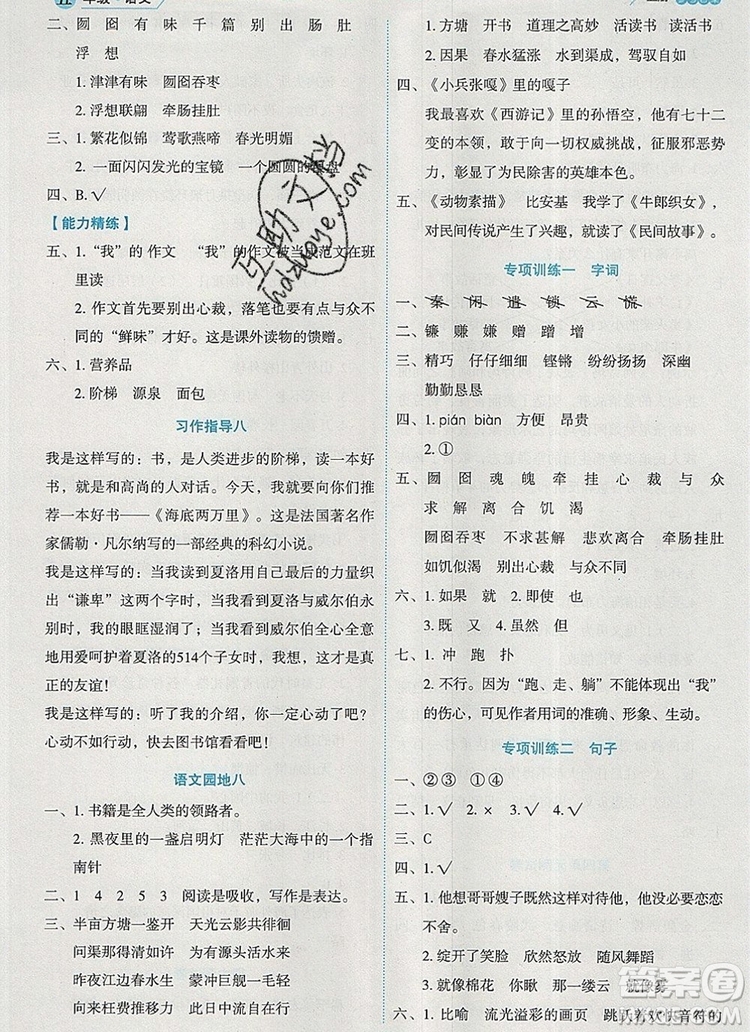 年级·语文
二、囫 囵 有 味 千 篇 别 出 肠 肚
浮 想
1. 津津有味 囫囵吞枣
2. 浮想联翩 牵肠挂肚
三、1. 繁花似锦 莺歌燕啼 春光明媚
2. 一面闪闪发光的宝镜 一个圆圆的 盘
四、B.√
【能力精练】
五、1. “我”的 作文 “我”的作文被当成范文在班
里读
2. 作文首先要别出心裁,落笔也要与众不
同的“鲜味”才好。这是课外读物的馈赠。
六、1. 营养品
2. 阶梯 源泉 面包
习作指导八
我是这样写的:书,是人类进步的阶梯,读一本好
书,就是和高尚的人对话。今天,我就给大家推荐
一本好书——《海底两万里》。这是法国著名作
家儒勒·凡尔纳写的一部经典的科幻小说。
我是这样写的:当我读到夏洛用自己最后的力量织
出“谦卑”这两个字时,当我看到夏洛与威尔伯永
别时,我的眼眶湿润了;当我看到威尔伯全心全意
地用爱呵护着夏洛的514个子女时,我体会到了真
正的友谊!
我是这样写的:听了我的介绍,你一定心动了吧?
心动不如行动,快去图书馆看看吧!
语文园地八
一、1. 书籍是全人类的领路者。
2. 黑夜里的一盏启明灯 茫茫大海中的一个指
南针
二、1 4 2 5 3 阅读是吸收,写作是表达。
三、半亩方塘一鉴开 天光云影共徘徊
问渠那得清如许 为有源头活水来
昨夜江边春水生 蒙冲巨舰一毛轻
向来枉费推移力 此日中流自在行
1. 方塘 开书 道理之高妙 活读书 读活书
2. 因果 春水猛涨 水到渠成,驾驭自如
四、《小兵张嘎》里的嘎子
我最喜欢《西游记》里的孙悟空,他有七十二
变的本领,敢于向一切权威挑战,征服邪恶势
力,彰显了为民除害的英雄本色。
五、《动物素描》 比安基 我读了《牛郎织女》,
对民间传说产生了兴趣,就读了《民间故事》。
专项训练一 字词
一、秦 闲 遣 锁 云 慌
二、镰 赚 嫌 赠 蹭 增
三、精巧 仔仔细细 铿锵 纷纷扬扬 深幽
勤勤恳恳
四、1. pián biàn 方便 昂贵
2. ①
五、囫 囵 魂 魄 牵 挂 心 裁 与 众
求 解 离 合 饥 渴
囫囵吞枣 不求甚解 悲欢离合 牵肠挂肚
如饥似渴 别出心裁 与众不同
六、1. 如果 就 2. 因为 所以
3. 既 又 4. 虽然 但
七、1. 冲 跑 扑
2. 不行。因为“跑、走、躺”不能体现出“我”
的伤心,可见作者用词的准确、形象、生动。
专项训练二 句子
一、②③ ①④
二、1.√ 2.× 3.√ 4.√
三、C
四、1.√
五、1. 他想哥哥嫂子既然这样对待他,他没必要恋恋
不舍。
2. 绽开了笑脸 欣然怒放 随风舞蹈
3. 就像棉花 那一缕云 就像雾
六、1. 比喻 流光溢彩的画页 音符的
互助文档
hdzuoye.com
答案圈